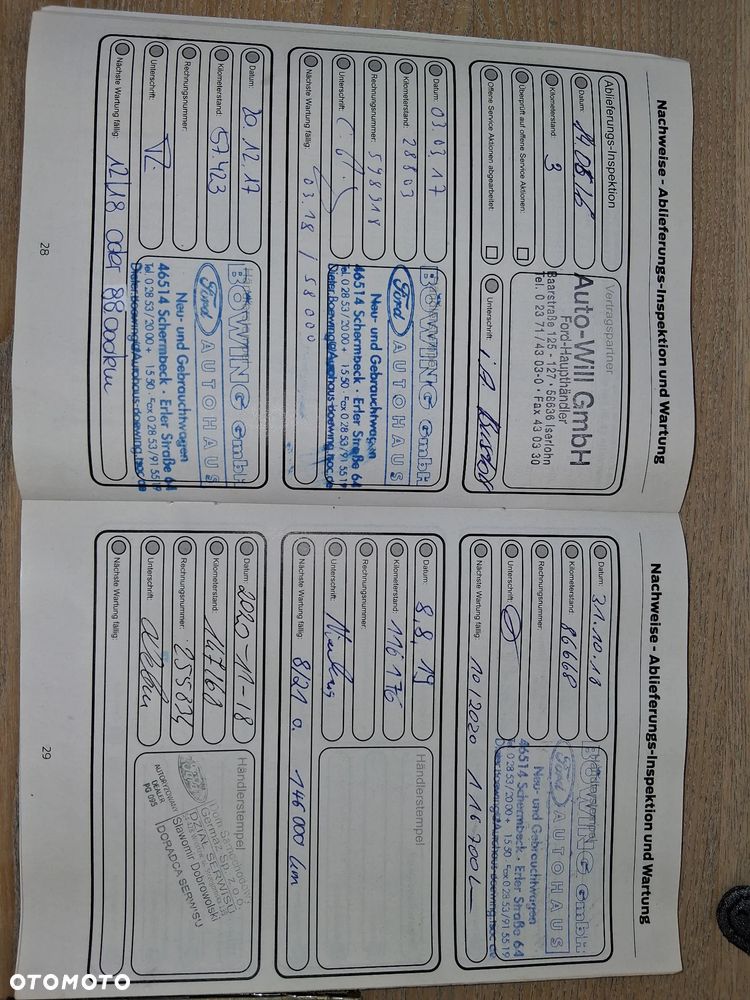 Nachweise - Ablieferungs-Inspektion und Wartung
Ablieferungs-Inspektion
Datum:
Kilometerstand: 3
Überprüft auf offene Service Aktionen:
Offene Service Aktionen abgearbeitet:
Vertragspartner
Auto-Will GmbH
Ford-Haupthändler
Baarstraße 125 - 127 · 58636 Iserlohn
Tel. 0 23 71 / 43 03-0 · Fax 43 03 30
Unterschrift:
Datum: 03.03.17
Kilometerstand: 28803
Rechnungsnummer: 598918
Unterschrift:
Nächste Wartung fällig: 03.18 / 58000
BÖWING GmbH
Ford AUTOHAUS
Neu- und Gebrauchtwagen
46514 Schermbeck · Erler Straße 64
Tel. 0 28 53 / 20 00 + 15 50 · Fax 0 28 53 / 91 55 19
Datum: 20.12.17
Kilometerstand: 57.423
Rechnungsnummer:
Unterschrift:
Nächste Wartung fällig: 12/18 oder 88000km
BÖWING GmbH
Ford AUTOHAUS
Neu- und Gebrauchtwagen
46514 Schermbeck · Erler Straße 64
Tel. 0 28 53 / 20 00 + 15 50 · Fax 0 28 53 / 91 55 19
28
Nachweise - Ablieferungs-Inspektion und Wartung
Datum: 31.10.18
Kilometerstand: 86668
Rechnungsnummer:
Unterschrift:
Nächste Wartung fällig: 10/2020 116700
Händlerstempel
BÖWING GmbH
Ford AUTOHAUS
Neu- und Gebrauchtwagen
46514 Schermbeck · Erler Straße 64
Tel. 0 28 53 / 20 00 + 15 50 · Fax 0 28 53 / 91 55 19
Datum: 8.8.19
Kilometerstand: 116176
Rechnungsnummer:
Unterschrift:
Nächste Wartung fällig: 8/21 o. 146 000 km
Händlerstempel
Datum: 2020-11-18
Kilometerstand: 147161
Rechnungsnummer: 255834
Unterschrift:
Nächste Wartung fällig:
Händlerstempel
Ford
AUTORYZOWANY
DEALER
PG 095
DZIAŁ SERWISU
Sławomir Dobrowolski
DORADCA SERWISU
29
OTOMOTO